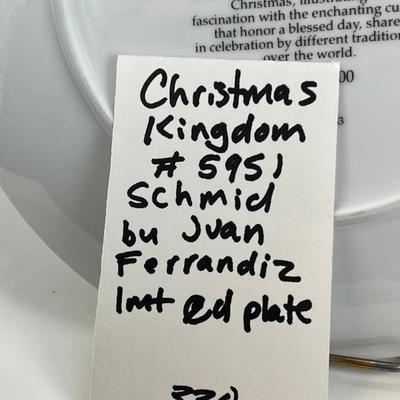 Christmas, illustrating
fascination with the enchanting cu
that honor a blessed day, share
in celebration by different tradition
over the world.
00
3
Christmas
Kingdom
# 5951
Schmid
bu Juan
Ferrandiz
lmt ed plate